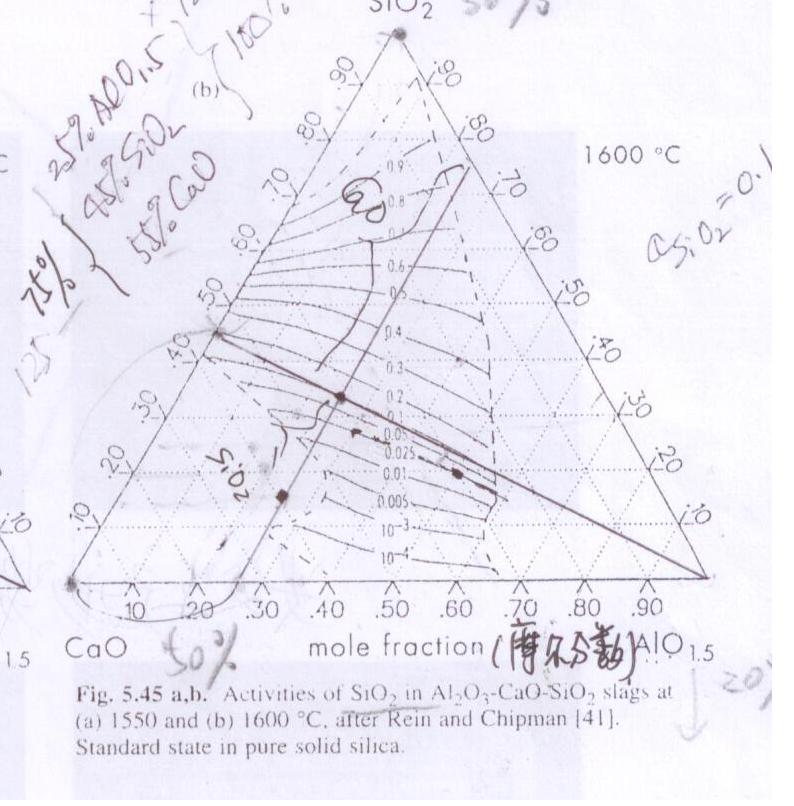 SiO₂
50%
(b)
100%
25% AlO1.5
45% SiO₂
55% CaO
75%
1600 °C
aSiO₂ = 0.1
CaO
20.15
.90
.80
.70
.60
.50
.40
.30
.20
.10
.90
.80
.70
.60
.50
.40
.30
.20
.10
0.9
0.8
0.7
0.6
0.5
0.4
0.3
0.2
0.1
0.05
0.025
0.01
0.005
10⁻³
10⁻⁴
.10 .20 .30 .40 .50 .60 .70 .80 .90
CaO mole fraction (摩尔分数) AlO1.5
50%
20%
1.5
Fig. 5.45 a,b. Activities of SiO₂ in Al₂O₃-CaO-SiO₂ slags at
(a) 1550 and (b) 1600 °C, after Rein and Chipman [41].
Standard state in pure solid silica.